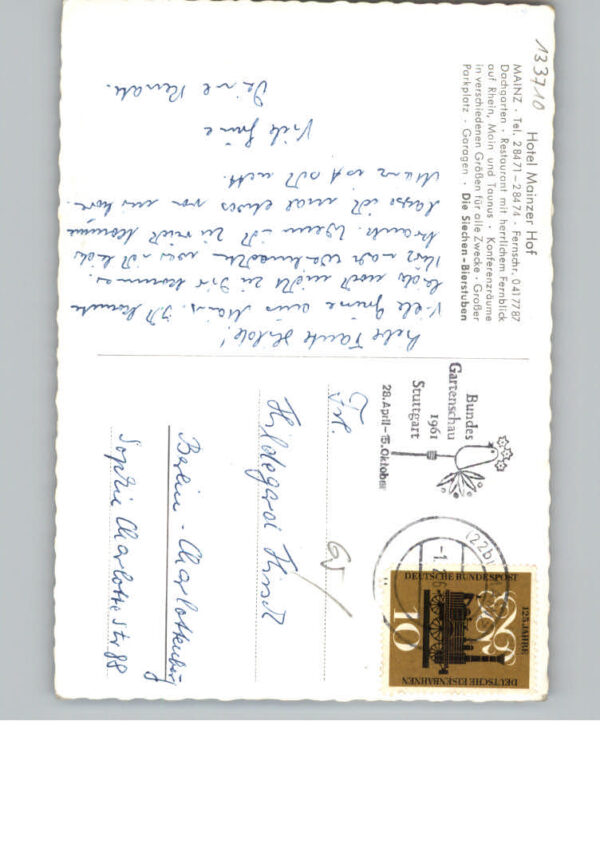 133710
Hotel Mainzer Hof
MAINZ · Tel. 28471-28474 · Fernschr. 0417787
Dachgarten · Restaurant mit herrlichem Fernblick
auf Rhein, Main und Taunus · Konferenzräume
in verschiedenen Größen für alle Zwecke · Großer
Parkplatz · Garagen · Die Siechen-Bierstuben
Liebe Tante Hilde!
Viele Grüße aus Mainz. Ich konnte
leider noch nicht zu Dir kommen.
Kurz nach Weihnachten war ich leider
krank. Wenn ich zu mich
lasse ich mal etwas von mir hören.
Mainz ist sehr nett.
Viele Grüße
Deine Renate.
Bundes
Gartenschau
1961
Stuttgart
28.April-15.Oktober
(22b)
DEUTSCHE BUNDESPOST
125 JAHRE
10
DEUTSCHE EISENBAHNEN
Frl.
Hildegard
Berlin-Charlottenburg
Sophie Charlotte Str 88